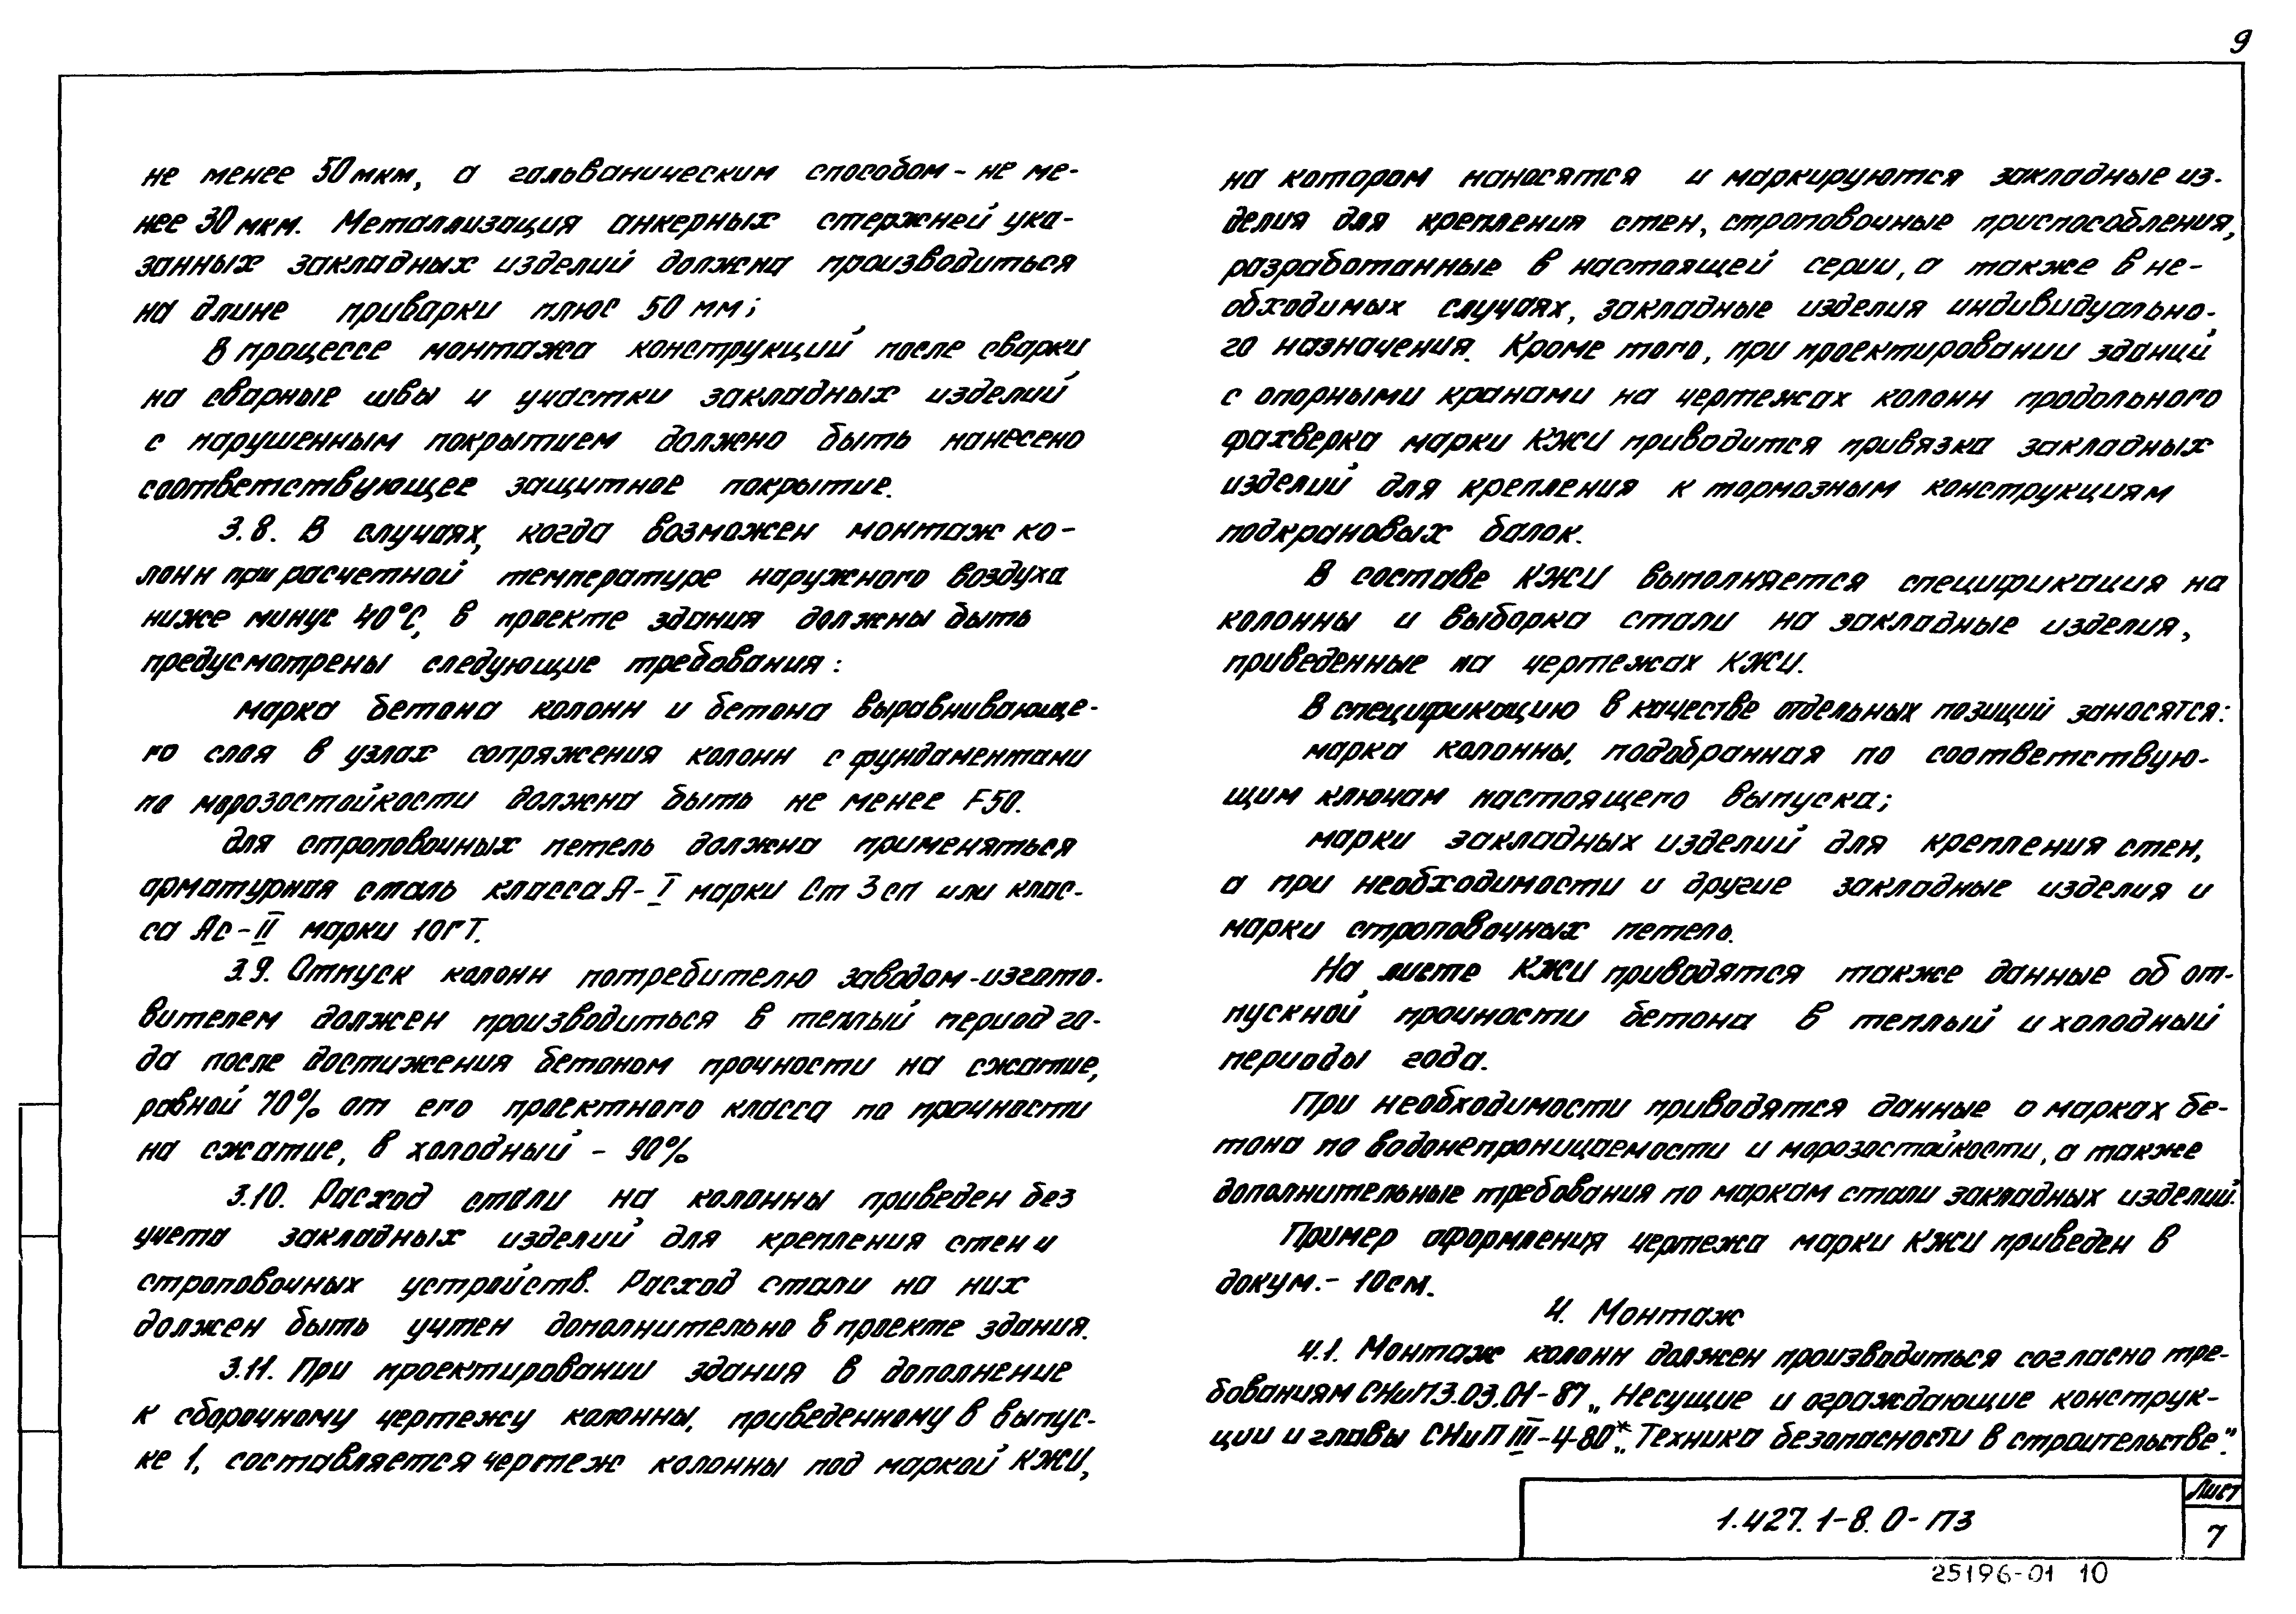 9
не менее 50 мкм, а гальваническим способом - не ме-
нее 30 мкм. Металлизация анкерных стержней ука-
занных закладных изделий должна производиться
на длине приварки плюс 50 мм;
В процессе монтажа конструкций после сварки
на сварные швы и участки закладных изделий
с нарушенным покрытием должно быть нанесено
соответствующее защитное покрытие.
3.8. В случаях, когда возможен монтаж ко-
лонн при расчетной температуре наружного воздуха
ниже минус 40°С, в проекте здания должны быть
предусмотрены следующие требования:
марка бетона колонн и бетона выравнивающе-
го слоя в узлах сопряжения колонн с фундаментами
по морозостойкости должна быть не менее F50.
для строповочных петель должна применяться
арматурная сталь класса А-I марки Ст 3 сп или клас-
са Ас-II марки 10ГТ.
3.9. Отпуск колонн потребителю заводом-изгото-
вителем должен производиться в теплый период го-
да после достижения бетоном прочности на сжатие,
равной 70% от его проектного класса по прочности
на сжатие, в холодный - 90%
3.10. Расход стали на колонны приведен без
учета закладных изделий для крепления стен и
строповочных устройств. Расход стали на них
должен быть учтен дополнительно в проекте здания.
3.11. При проектировании здания в дополнение
к сборочному чертежу колонны, приведенному в выпус-
ке 1, составляется чертеж колонны под маркой КЖИ,
на котором наносятся и маркируются закладные из-
делия для крепления стен, строповочные приспособления,
разработанные в настоящей серии, а также в не-
обходимых случаях, закладные изделия индивидуально-
го назначения. Кроме того, при проектировании зданий
с опорными кранами на чертежах колонн продольного
фахверка марки КЖИ приводится привязка закладных
изделий для крепления к тормозным конструкциям
подкрановых балок.
В составе КЖИ выполняется спецификация на
колонны и выборка стали на закладные изделия,
приведенные на чертежах КЖИ.
В спецификацию в качестве отдельных позиций заносятся:
марка колонны, подобранная по соответствую-
щим ключам настоящего выпуска;
марки закладных изделий для крепления стен,
а при необходимости и другие закладные изделия и
марки строповочных петель.
На листе КЖИ приводятся также данные об от-
пускной прочности бетона в теплый и холодный
периоды года.
При необходимости приводятся данные о марках бе-
тона по водонепроницаемости и морозостойкости, а также
дополнительные требования по маркам стали закладных изделий.
Пример оформления чертежа марки КЖИ приведен в
докум.- 10см.
4. Монтаж
4.1. Монтаж колонн должен производиться согласно тре-
бованиям СНиП3.03.01-87 „Несущие и ограждающие конструк-
ции и главы СНиП III-4-80* „Техника безопасности в строительстве".
1.427.1-8.0-ПЗ
Лист
7
25196-01 10